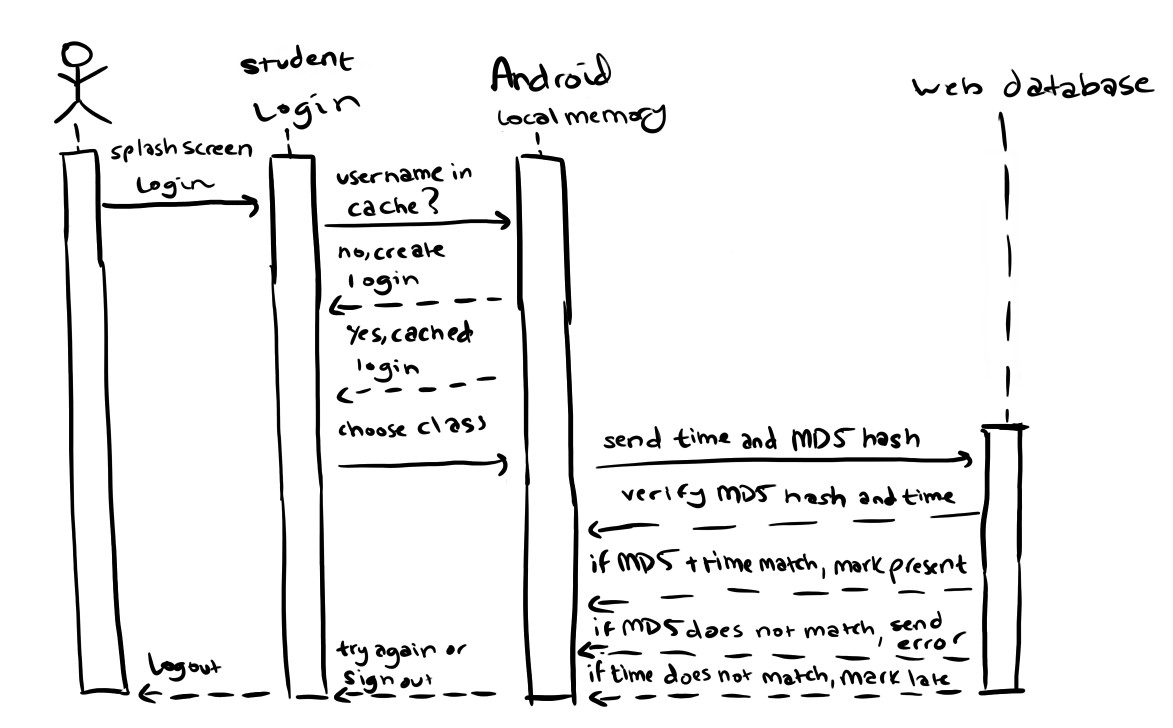 student
Login
Android
Local memory
web database
splash screen
Login
username in
cache?
no, create
login
Yes, cached
login
choose class
send time and MD5 hash
verify MD5 hash and time
if MD5 + time match, mark present
if MD5 does not match, send
error
if time does not match, mark late
try again or
sign out
Logout